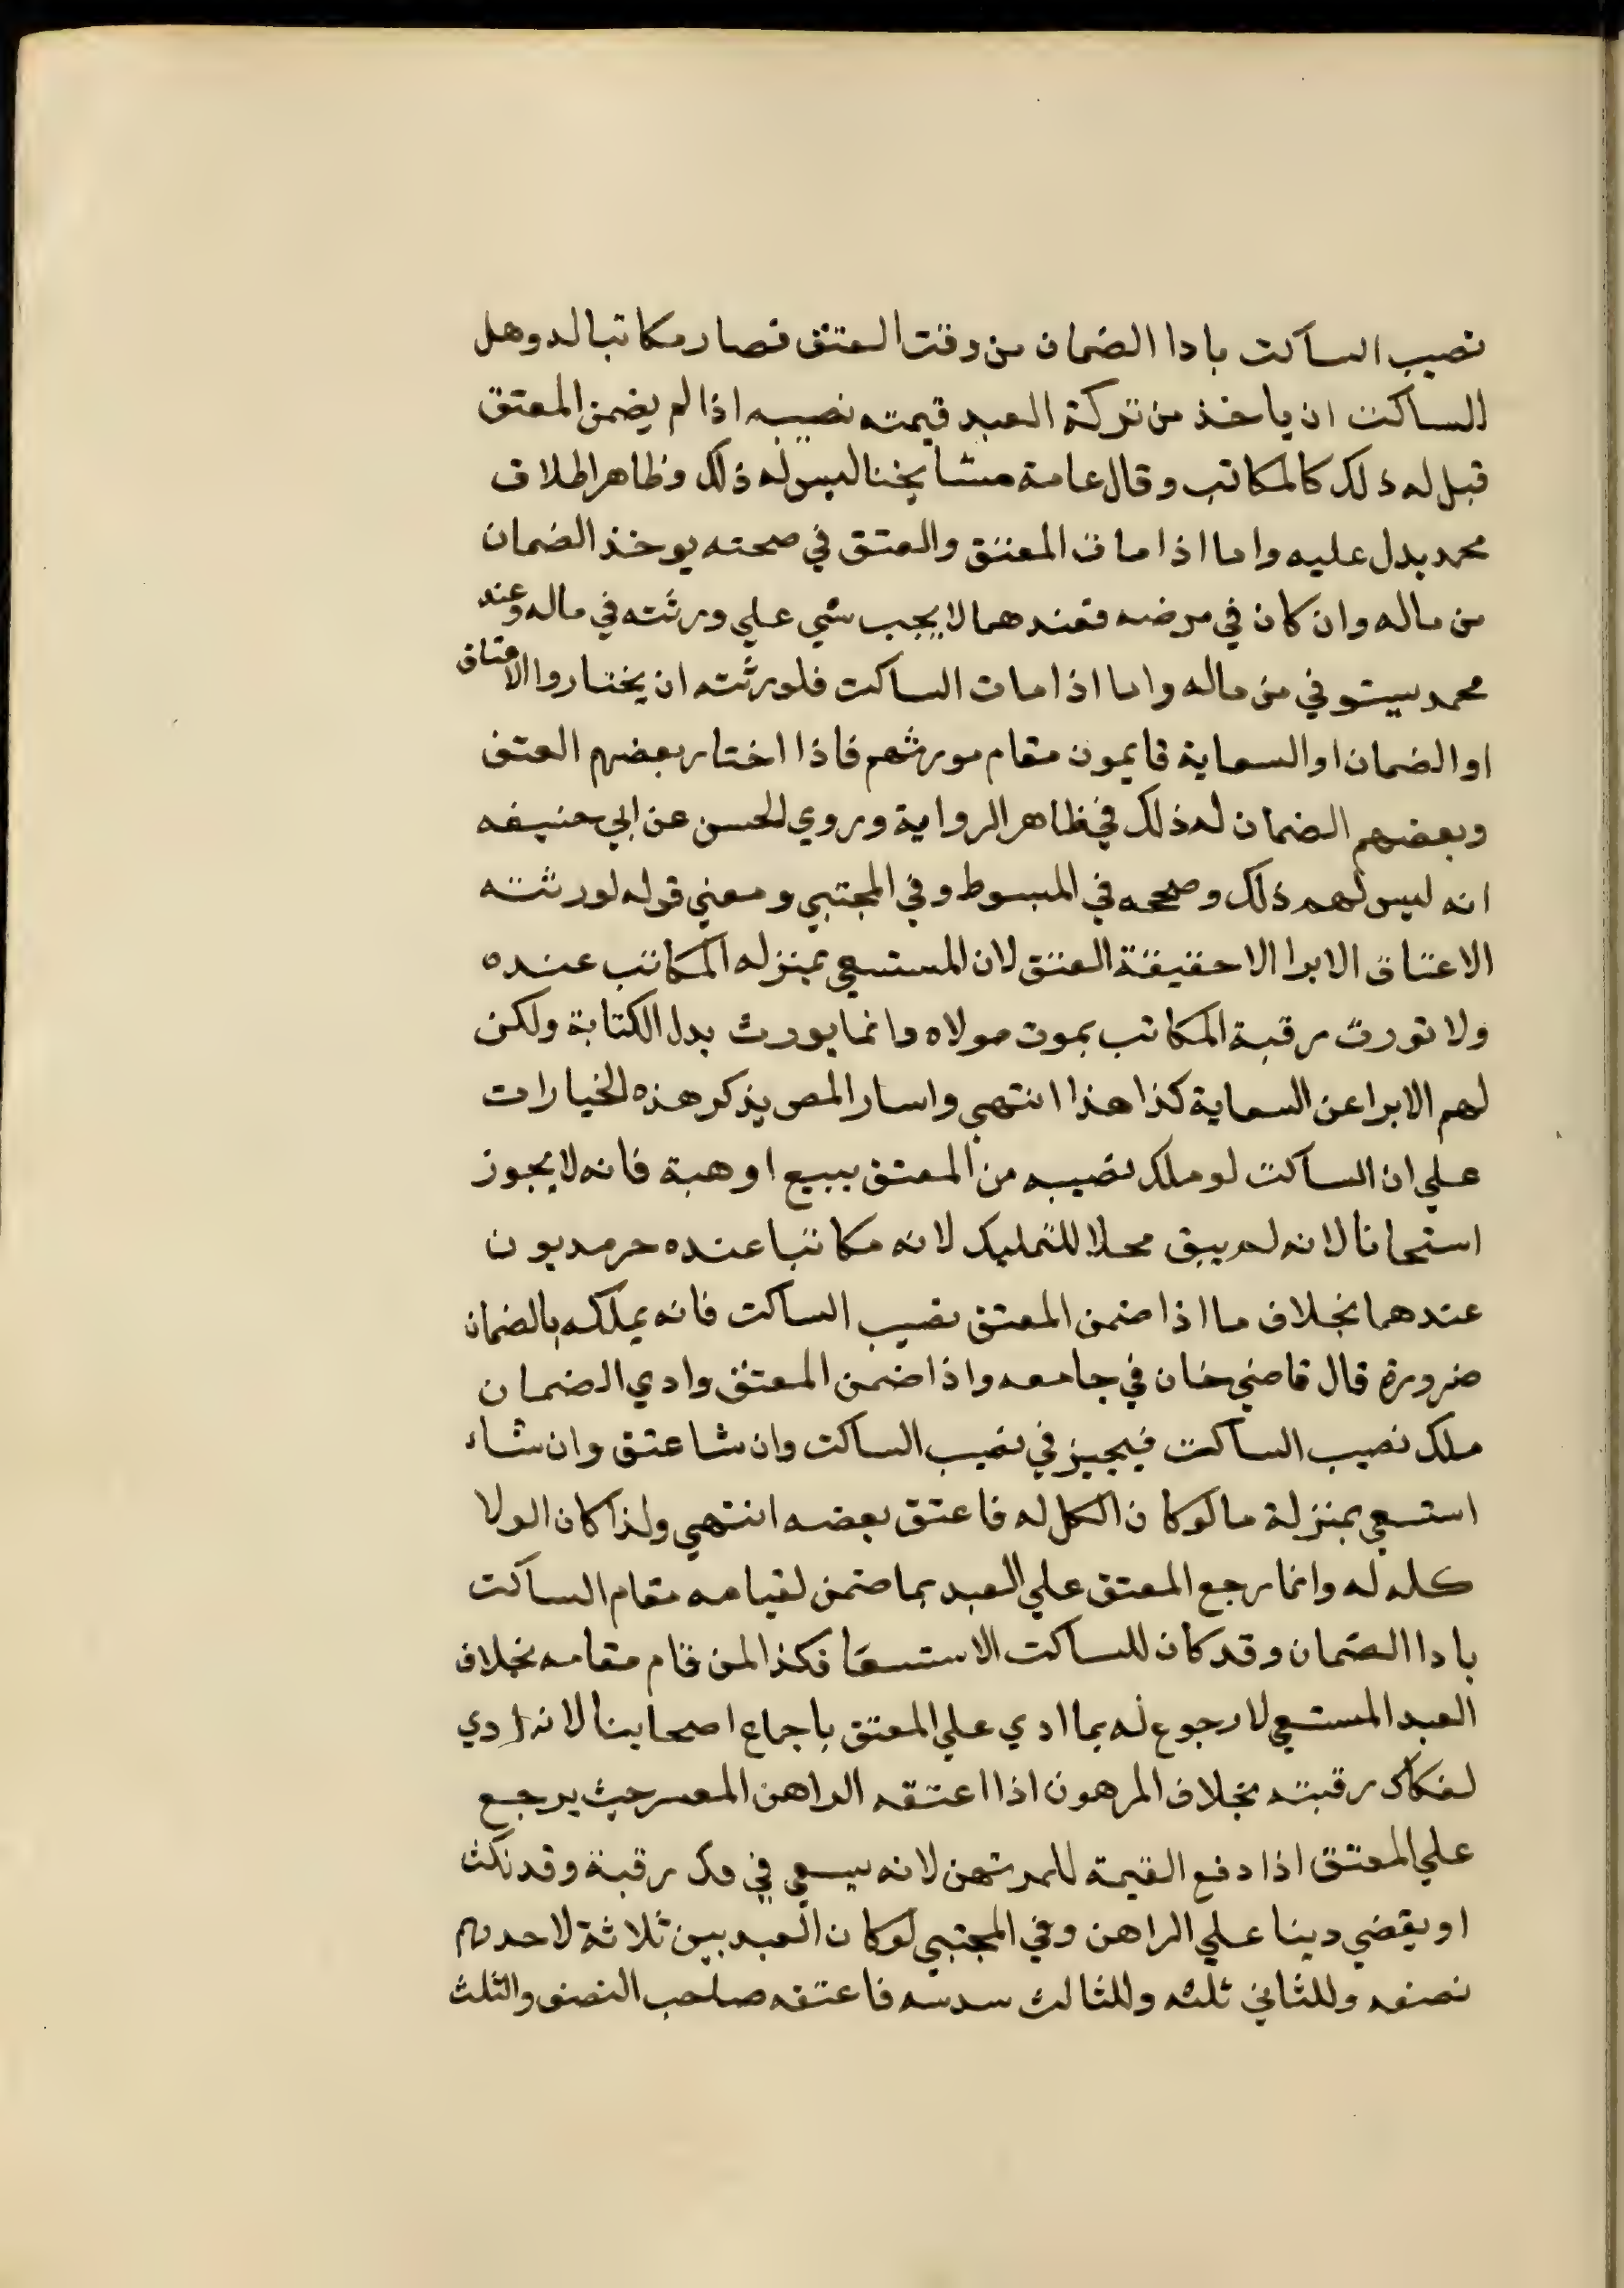 نصيب الساكت بادا الضمان من وقت العتق فصار مكاتبا له وهل
للساكت ان ياخذ من تركة العبد قيمته نصيبه اذا لم يضمن المعتق
قبل له ذلك كالمكاتب وقال عامة مشايخنا ليس له ذلك وظاهر اطلاق
محمد يدل عليه واما اذا مات المعتق والعتق في صحته يوخذ الضمان
من ماله وان كان في مرضه فعندهما لا يجب شي علي ورثته في ماله وعند
محمد يستوفي من ماله واما اذا مات الساكت فلورثته ان يختاروا الاعتاق
او الضمان او السعاية قايمون مقام مورثهم فاذا اختار بعضهم العتق
وبعضهم الضمان له ذلك في ظاهر الرواية وروي الحسن عن ابي حنيفه
انه ليس لهم ذلك وصححه في المبسوط وفي المجتبي ومعني قوله لورثته
الاعتاق الابرا الا حقيقة العتق لان المستسعي بمنزله المكاتب عنده
ولا تورث رقبة المكاتب بموت مولاه وانما يورث بدل الكتابة ولكن
لهم الابرا عن السعاية كذا هذا انتهي واسار المص يذكر هذه الخيارات
علي ان الساكت لو ملك نصيبه من المعتق ببيع او هبة فانه لا يجوز
استحانا لانه لم يبق محلا للتمليك لانه مكاتبا عنده حر مديون
عندهما بخلاف ما اذا ضمن المعتق نصيب الساكت فانه يملكه بالضمان
ضرورة قال قاضي خان في جامعه واذا ضمن المعتق وادي الضمان
ملك نصيب الساكت فيجيز في نصيب الساكت وان شا عتق وان شاء
استسعي بمنزلة ما لو كان الكل له فاعتق بعضه انتهي ولذا كان الولا
كله له وانما رجع المعتق علي العبد بما ضمن لقيامه مقام الساكت
بادا الضمان وقد كان للساكت الاستسعا فكذا لمن قام مقامه بخلاف
العبد المستسعي لا رجوع له بما ادي علي المعتق باجماع اصحابنا لانه ادي
لفكاك رقبته بخلاف المرهون اذا اعتقه الراهن المعسر حيث يرجع
علي المعتق اذا دفع القيمة للمرتهن لانه يسعي في فك رقبة وقد نكث
او يقضي دينا علي الراهن وفي المجتبي لو كان العبد بين ثلاثة لاحدهم
نصفه وللثاني ثلثه وللثالث سدسه فاعتقه صاحب النصف والثلث